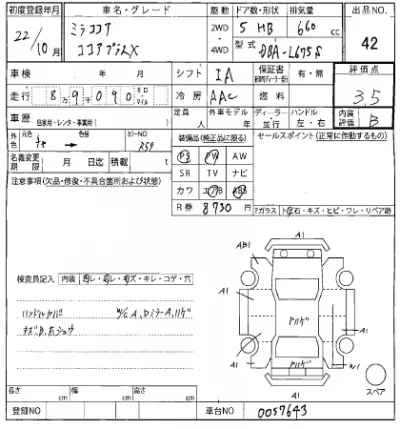 初度登録年月 車名・グレード 駆動 ドア数・形状 排気量 出品NO.
22/10月 ミラココア ココアプラスX 2WD ・ 4WD 5 HB 660 cc 42
型式 DBA-L675S
車検 年 月 シフト IA 保証書 有・無 評価点
走行 8万9090 キロ マイル 冷房 AAC 燃料 3.5
車歴 自家用・レンタ・事業用( ) 定員 人 外車モデル 年 ディーラー 並行 ハンドル 左・右 内装評価 B
外色 元色 色替 カラーNO R59
装備品(純正品に限る) セールスポイント(正常に作動するもの)
名義変更期限 月 日迄 積載 t
PS PW AW
注意事項(欠品・修復・不具合箇所および状態)
SR TV ナビ
カワ エアB ABS
R券 8730 円
Fガラス
A1
AB1 A1
検査員記入 内装 コゲ・穴
ハンドルケバ W/C A、ロミラーA、ハゲ
A1 A1
A1 W1
A1 A1
スペア
長さ cm 幅 cm 高さ cm
登録NO 車台NO 0057643